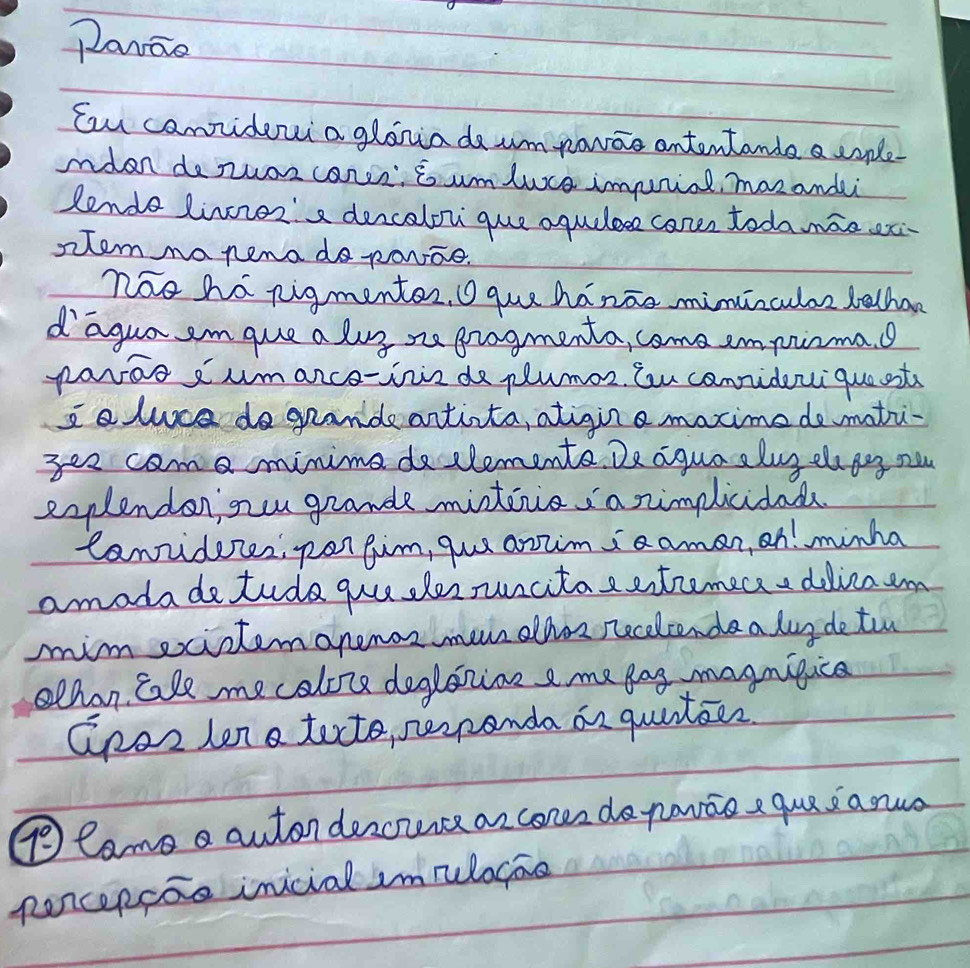 Pavão
Eu considerei a glória de um pavão ontentando o esple-
ndor de suas cores: É um luxo imperial. mas andei
lendo livros: e descobri que aquelas cores toda não exi-
stem na pena do pavão.
não há pigmentos. O que há são minúsculas bolhas
d'água em que a luz se fragmenta, como em prisma. O
pavão é um arco-íris de plumas. Eu considerei que este
é o luxo do grande artista, atigir o maximo de matri-
zes com o mínimo de elemento. De água e luz ele fez seu
esplendor; seu grande mistério é a simplicidade.
Considerei: por fim, que assim é o amor, oh! minha
amada de tudo que eles suscita e estremece e delira em
mim existem apenas meus olhos recebendo a luz de teu
olhar. Ele me cobre de glórias e me faz magnífico
Após ler o texto, responda ás questões.
1º Como o autor descreve as cores do pavão e que é a sua
percepção inicial em relação